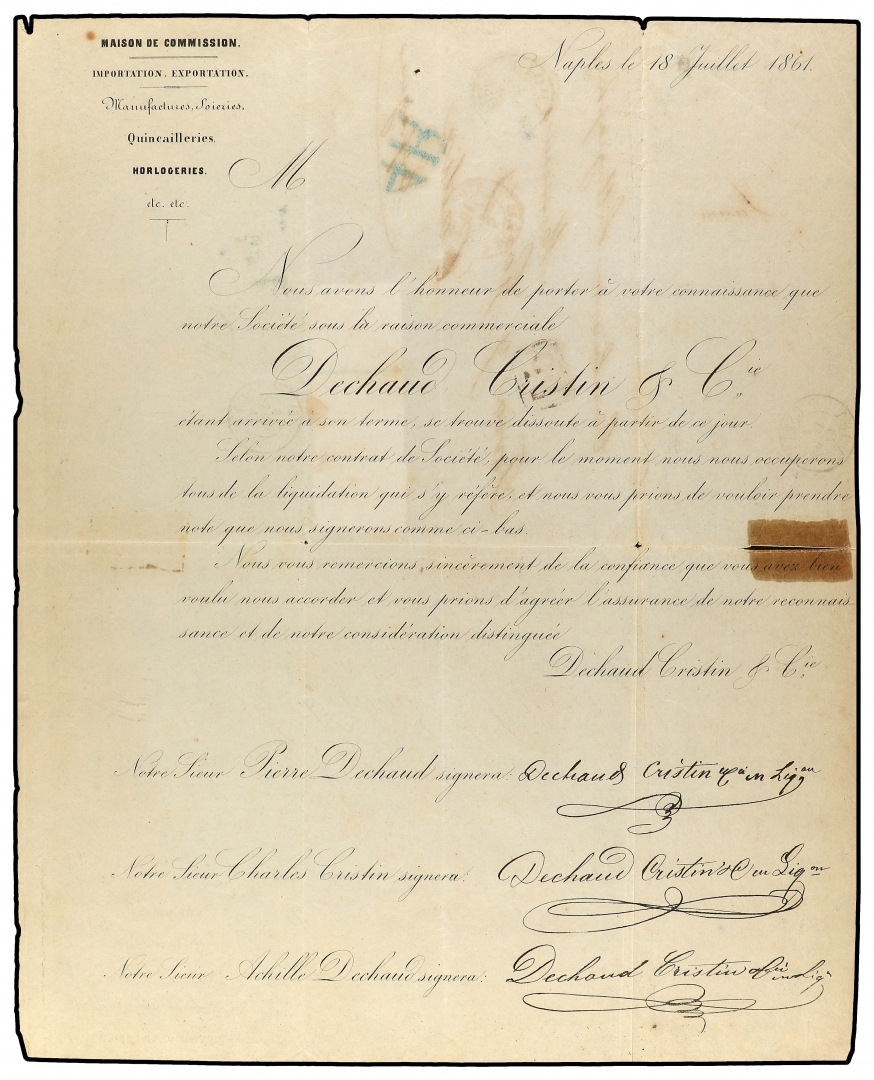 MAISON DE COMMISSION.
IMPORTATION, EXPORTATION.
Manufactures, Soieries,
Quincailleries,
HORLOGERIES,
etc. etc.
Naples le 18 Juillet 1861.
M
Nous avons l'honneur de porter à votre connaissance que
notre Société sous la raison commerciale
Dechaud Cristin & Cie
étant arrivée a son terme, se trouve dissoute à partir de ce jour.
Selon notre contrat de Société, pour le moment nous nous occuperons
tous de la liquidation qui s'y réfère, et nous vous prions de vouloir prendre
note que nous signerons comme ci-bas.
Nous vous remercions, sincèrement de la confiance que vous avez bien
voulu nous accorder et vous prions d'agréer l'assurance de notre reconnais
sance et de notre considération distinguée
Dechaud Cristin & Cie
Notre Sieur Pierre Dechaud signera: Dechaud Cristin & Cie en Liqon
Notre Sieur Charles Cristin signera: Dechaud Cristin & C en Liqon
Notre Sieur Achille Dechaud signera: Dechaud Cristin & Cie en Liqn